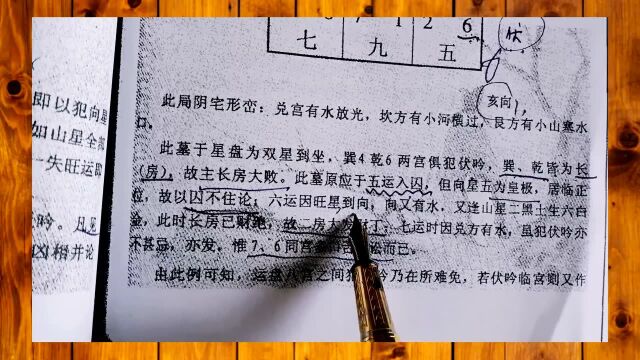 6 7 1 2 6
七 九 五
伏
亥向
即以犯向星
如山星全部
一失旺运即
吟。且
凶相并论
此局阴宅形峦：兑宫有水放光，坎方有小河横过，艮方有小山塞水
口。
此墓于星盘为双星到坐，巽4乾6两宫俱犯伏吟，巽、乾皆为长
(房)，故主长房大败。此墓原应于五运入囚，但向星五为皇极，居临正
位，故以囚不住论；六运因旺星到向，向又有水，又逢山星二黑土生六白
金，此时长房已财跑，故二房大发财丁；七运时因兑方有水，虽犯伏吟亦
不甚忌，亦发。惟7、6同宫 讼而已。
由此例可知，运盘八宫之间犯伏吟乃在所难免，若伏吟临宫则又作